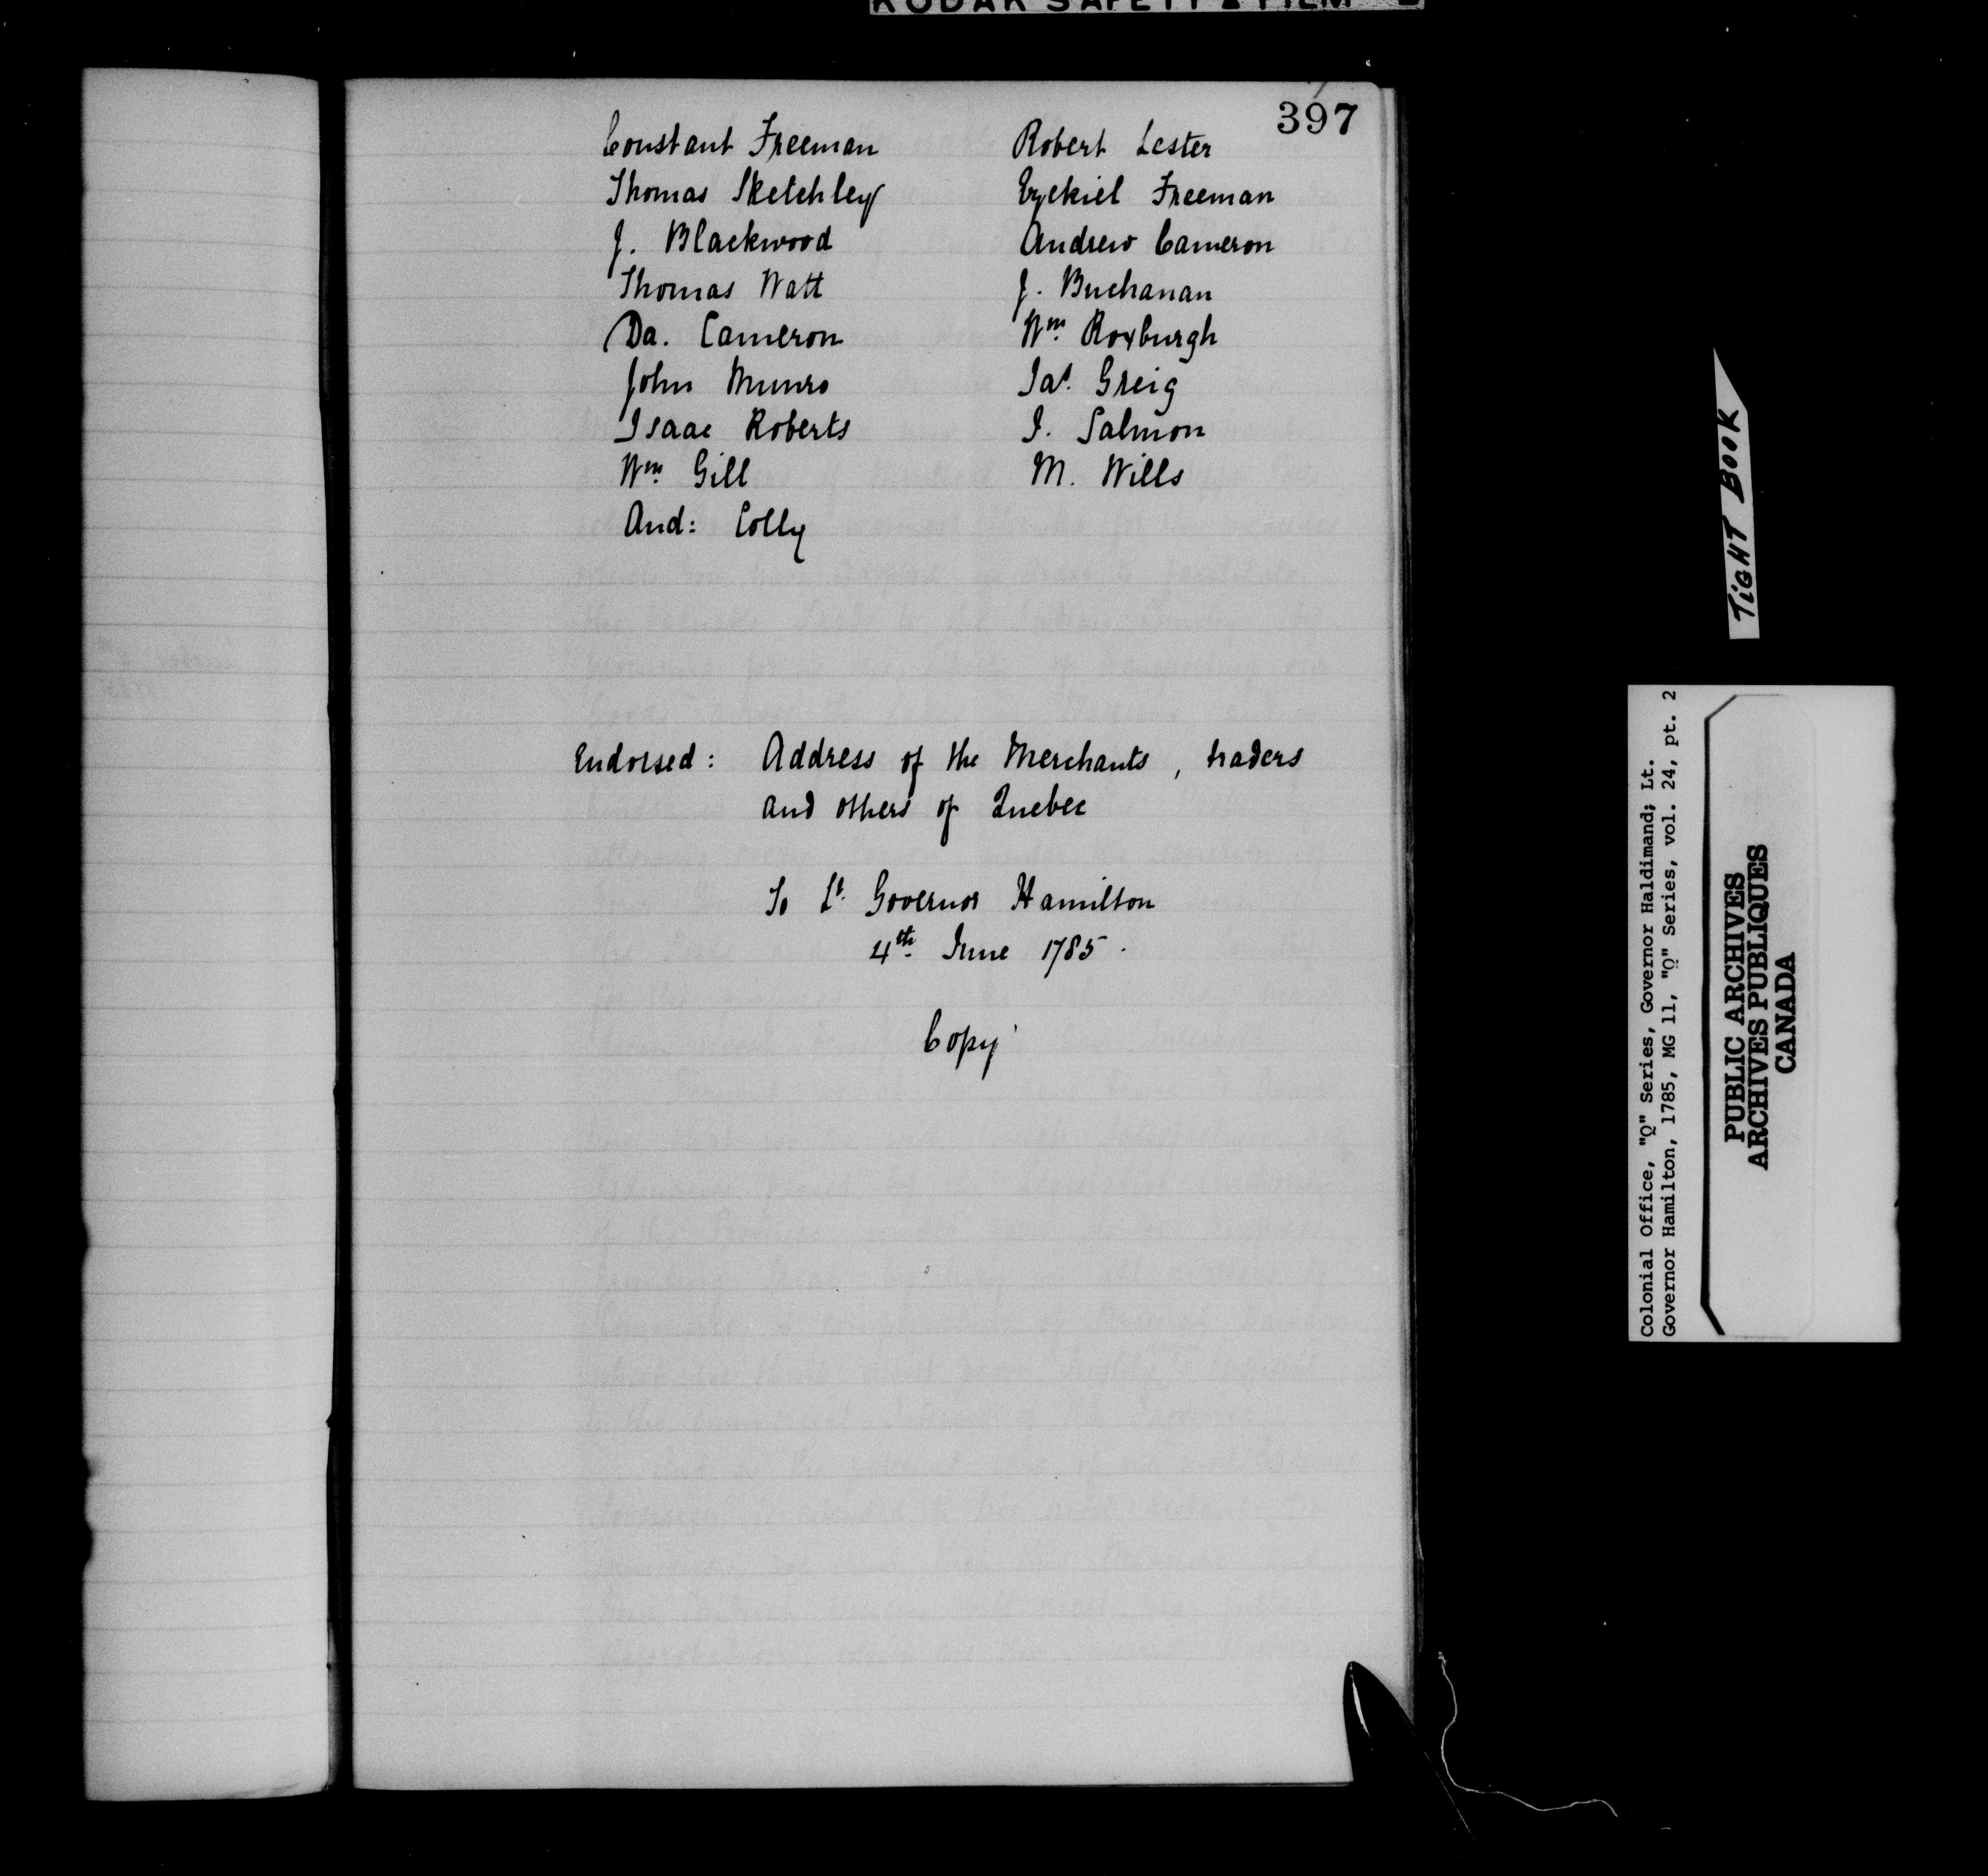 KODAK SAFETY FILM
397
Constant Freeman
Thomas Sketchley
J. Blackwood
Thomas Watt
Da. Cameron
John Munro
Isaac Roberts
Wm. Gill
And: Colly
Robert Lester
Ezekiel Freeman
Andrew Cameron
J. Buchanan
Wm. Roxburgh
Jas. Greig
J. Salmon
M. Wills
Endorsed: Address of the Merchants, traders
and others of Quebec
To Lt. Governor Hamilton
4th June 1785.
Copy
TIGHT BOOK
Colonial Office, "Q" Series, Governor Haldimand; Lt.
Governor Hamilton, 1785, MG 11, "Q" Series, vol. 24, pt. 2
PUBLIC ARCHIVES
ARCHIVES PUBLIQUES
CANADA